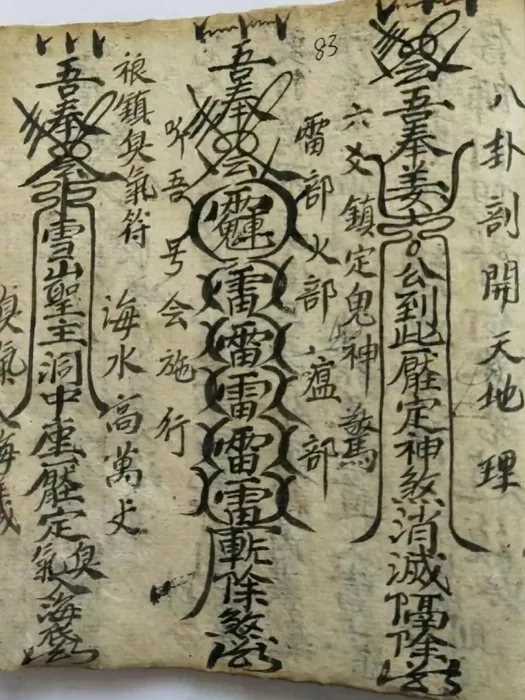 八卦剖開天地理
吾奉姜公到此壓定神煞消滅隔除
六爻鎮定鬼神驚
83
雷部火部瘟部
吾奉雷雷雷雷雷斬除煞
吾号会施行
鎮臭氣符
海水高萬丈
吾奉雪山聖主洞中座壓定臭氣入海
臭氣入海